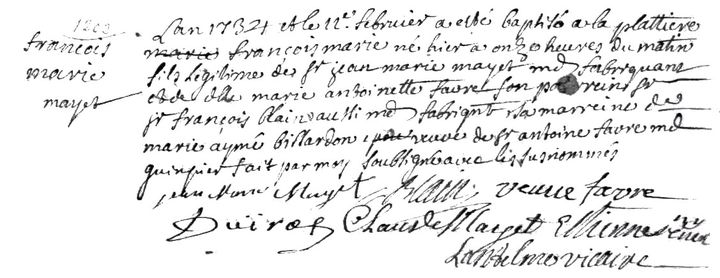 françois
marie
mayet
L'an 1732 et le 11e febvrier a esté baptisé a la plattiere
marie françois marie né hier a onze heures du matin
fils legitime de sr jean marie mayet md fabriquant
et de dlle marie antoinette favre son parrein sr
sr françois blain aussi md fabriqnt sa marreine de
marie aymé billardon veuve de sr antoine favre md
quinquier fait par moy soubsigné avec les susnommés
jean Marie Mayet Blain veuve favre
Claude Mayet Ettienne
vicaire